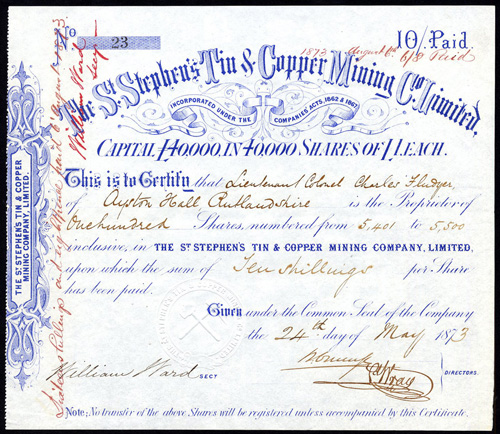 No 23
10/- Paid
1873 August 6th 6/8 Paid
The St. Stephen's Tin & Copper Mining Co. Limited.
INCORPORATED UNDER THE COMPANIES' ACTS, 1862 & 1867.
CAPITAL £40,000, IN 40,000 SHARES OF £1 EACH.
This is to Certify that Lieutenant Colonel Charles Fludyer,
of Ayston Hall Rutlandshire is the Proprietor of
One hundred Shares, numbered from 5,401 to 5,500
inclusive, in THE ST. STEPHEN'S TIN & COPPER MINING COMPANY, LIMITED,
upon which the sum of Ten shillings per Share
has been paid.
Given under the Common Seal of the Company
the 24th day of May 1873
William Ward SECY
DIRECTORS.
Note; No transfer of the above Shares will be registered unless accompanied by this Certificate.
THE ST. STEPHEN'S TIN & COPPER
MINING COMPANY, LIMITED.
William Ward
Secy